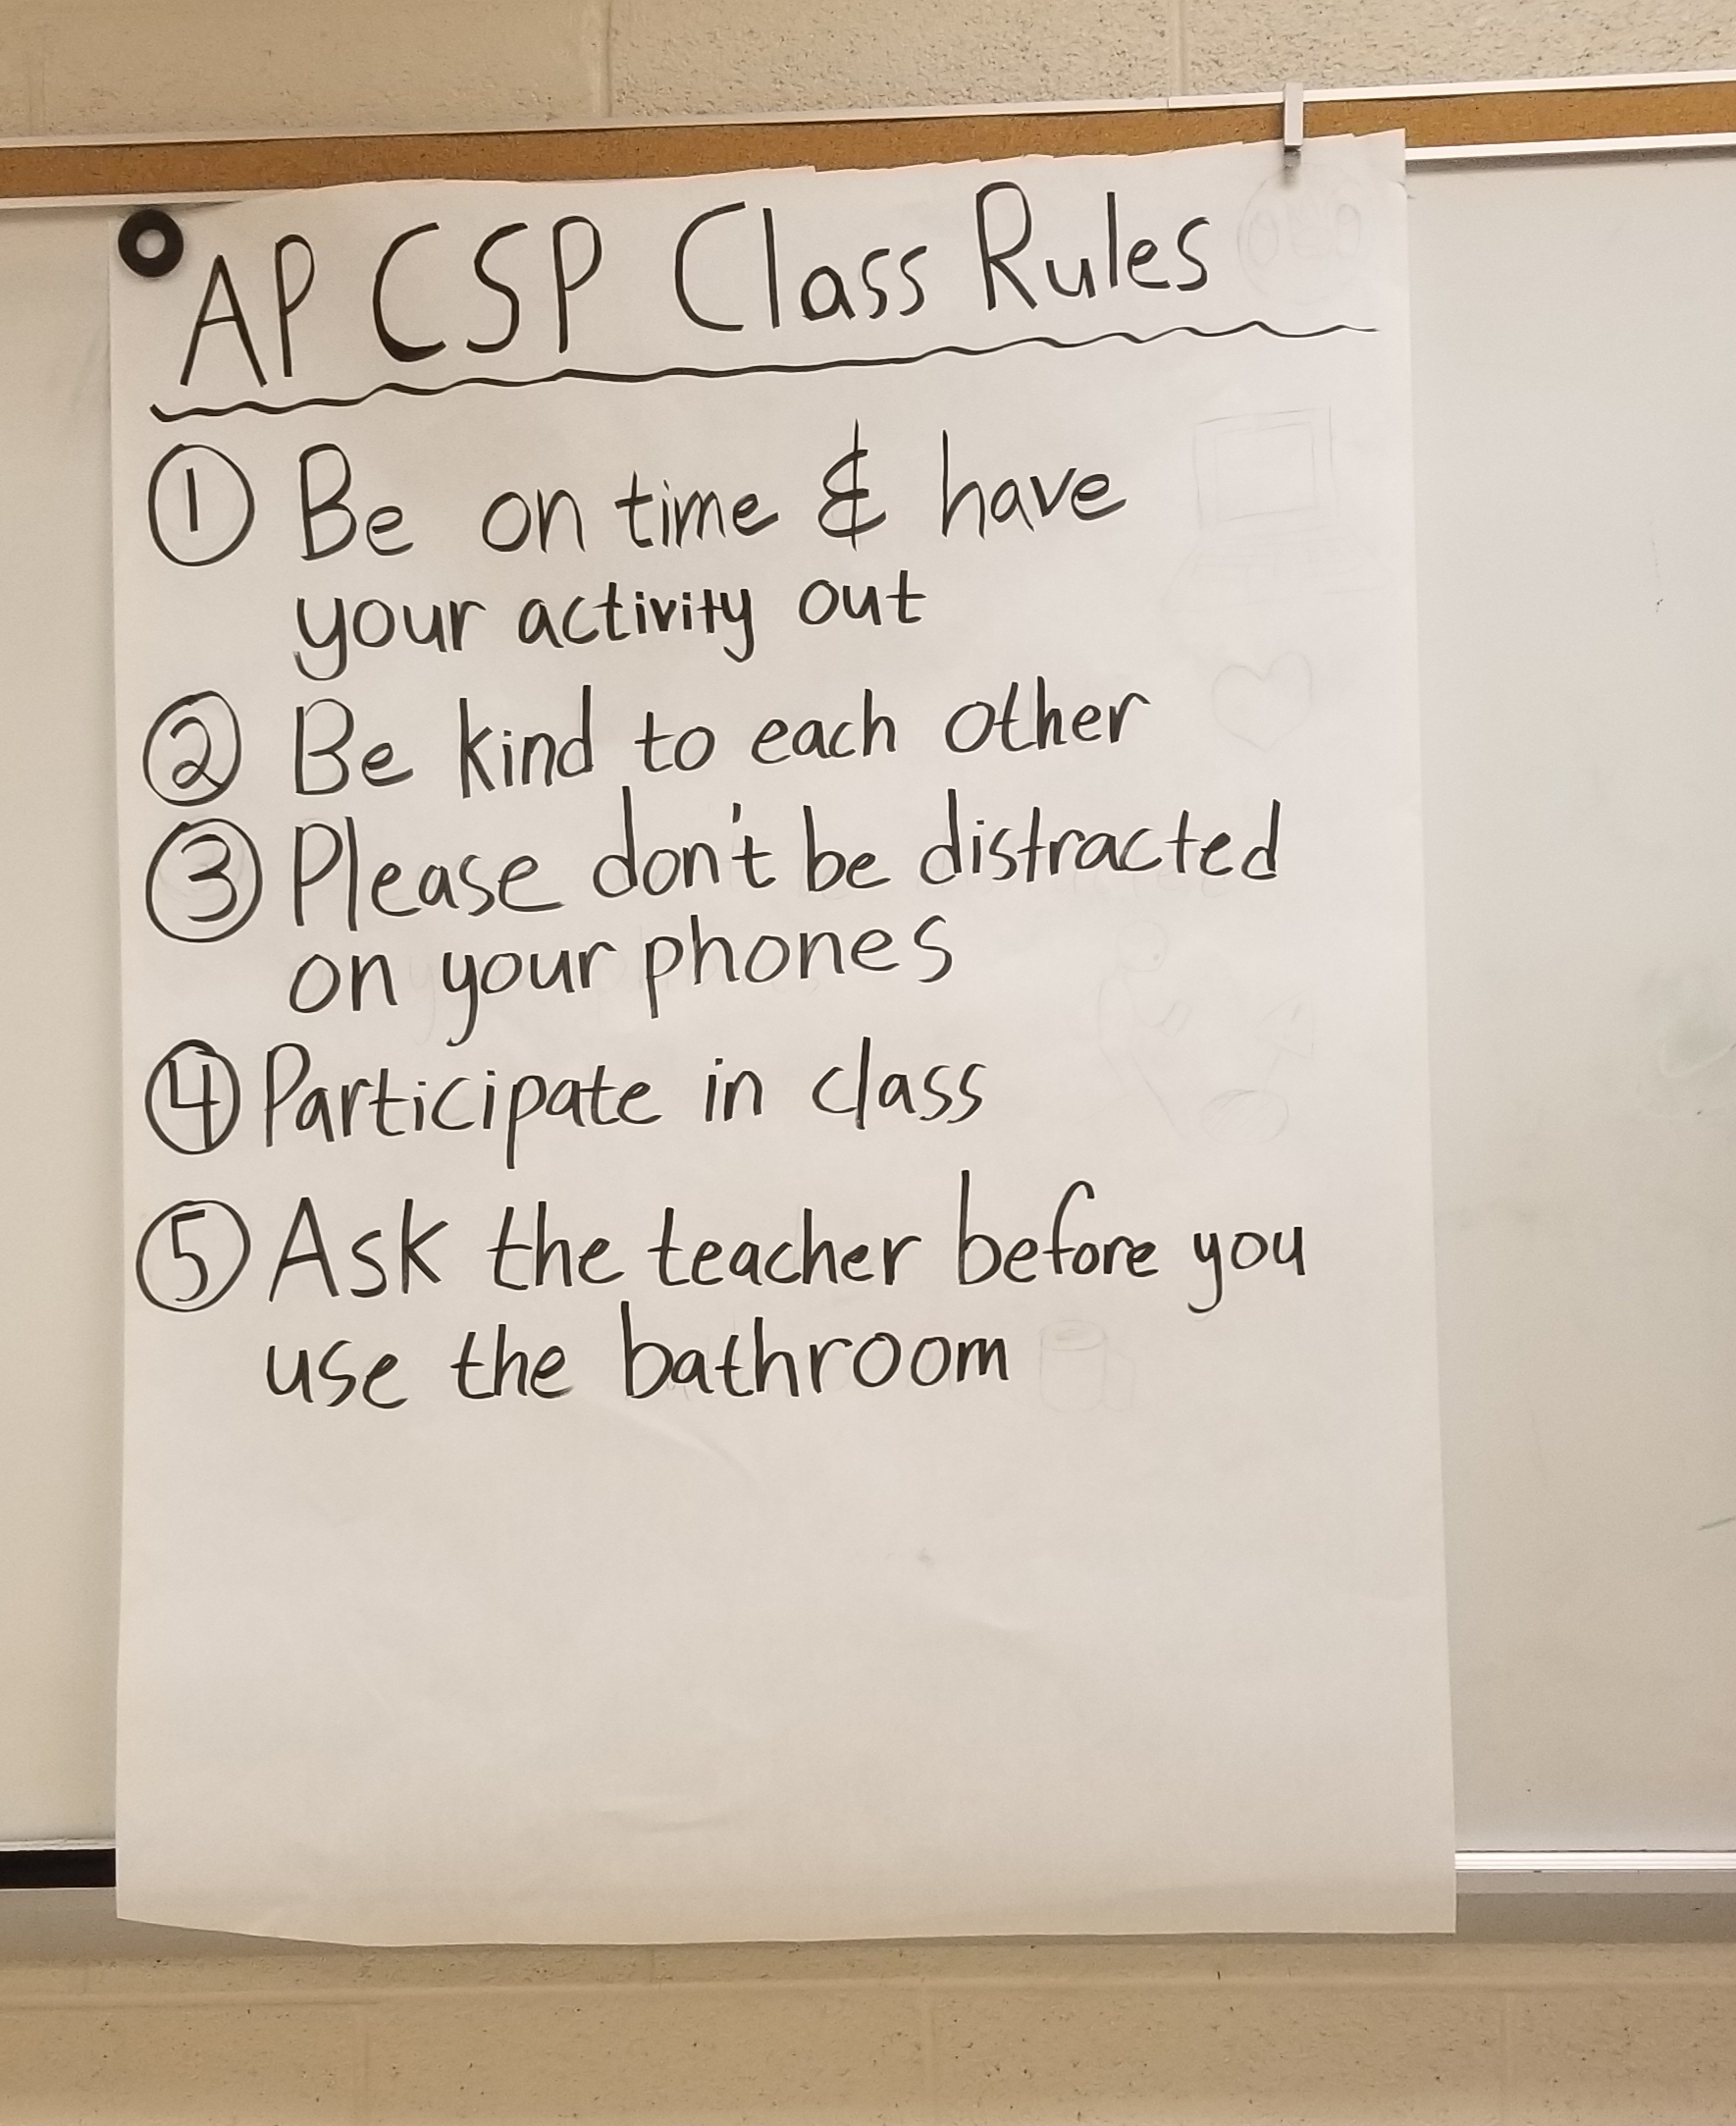 AP CSP Class Rules
① Be on time & have
your activity out
② Be kind to each other
③ Please don't be distracted
on your phones
④ Participate in class
⑤ Ask the teacher before you
use the bathroom